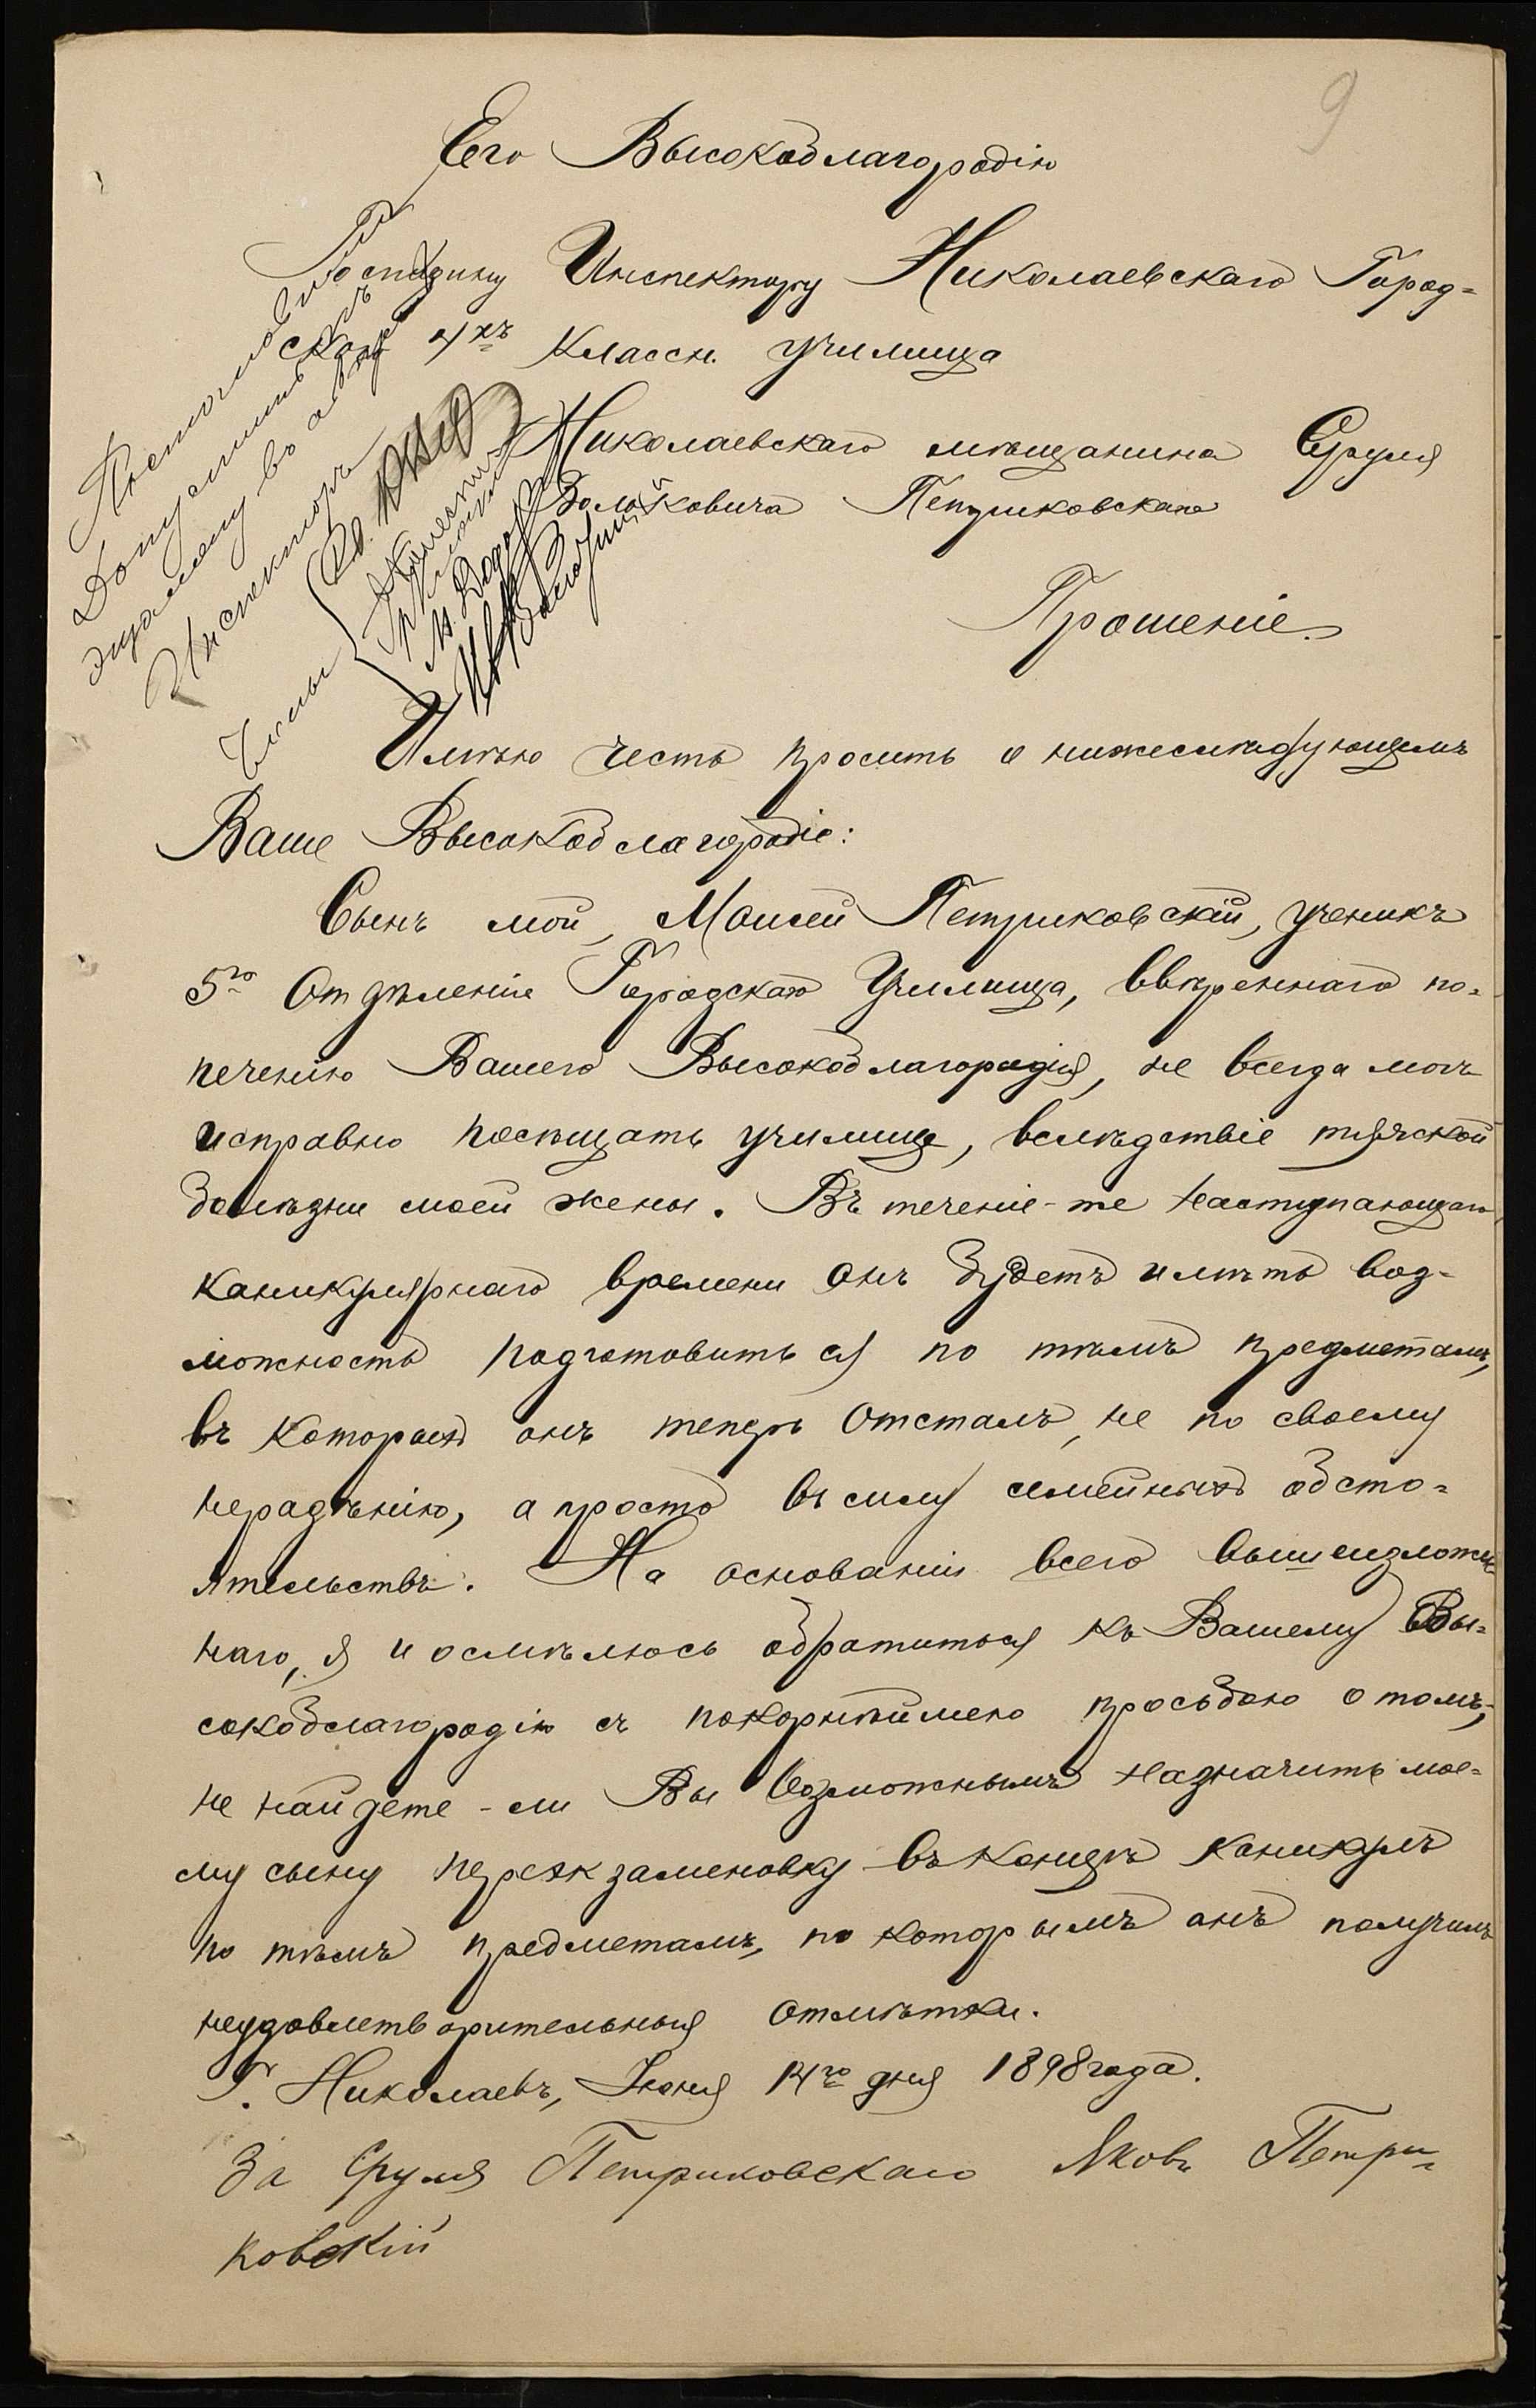 9
Его Высокоблагородію
Господину Инспектору Николаевскаго Город=
скаго 4хъ Классн. училища
Николаевскаго мѣщанина Сруля
Петриковскаго
Прошеніе.
Постановили
Допустить къ
экзамену въ августѣ
Инспекторъ
Члены
Имѣю честь просить о нижеслѣдующемъ
Ваше Высокоблагородіе:
Сынъ мой, Моисей Петриковскій, ученикъ
5го Отдѣленія Городскаго Училища, ввѣреннаго по=
печенію Вашего Высокоблагородія, не всегда могъ
исправно посѣщать училище, вслѣдствіе тяжской
болѣзни моей жены. Въ теченіе-же наступающаго
каникулярнаго времени онъ будетъ имѣть воз=
можность подготовиться по тѣмъ предметамъ,
въ которыхъ онъ теперь отсталъ, не по своему
нерадѣнію, а просто въ силу семейныхъ обсто=
ятельствъ. На основаніи всего вышеизложен
наго, я и осмѣлюсь обратиться къ Вашему Вы=
сокоблагородію съ покорнѣйшею просьбою о томъ,
не найдете-ли Вы возможнымъ назначить мое=
му сыну переэкзаменовку въ концѣ каникулъ
по тѣмъ предметамъ, по которымъ онъ получилъ
неудовлетворительныя отмѣтки.
Г. Николаевъ, Іюня 14го дня 1898 года.
За Сруля Петриковскаго Яковъ Петри=
ковскій